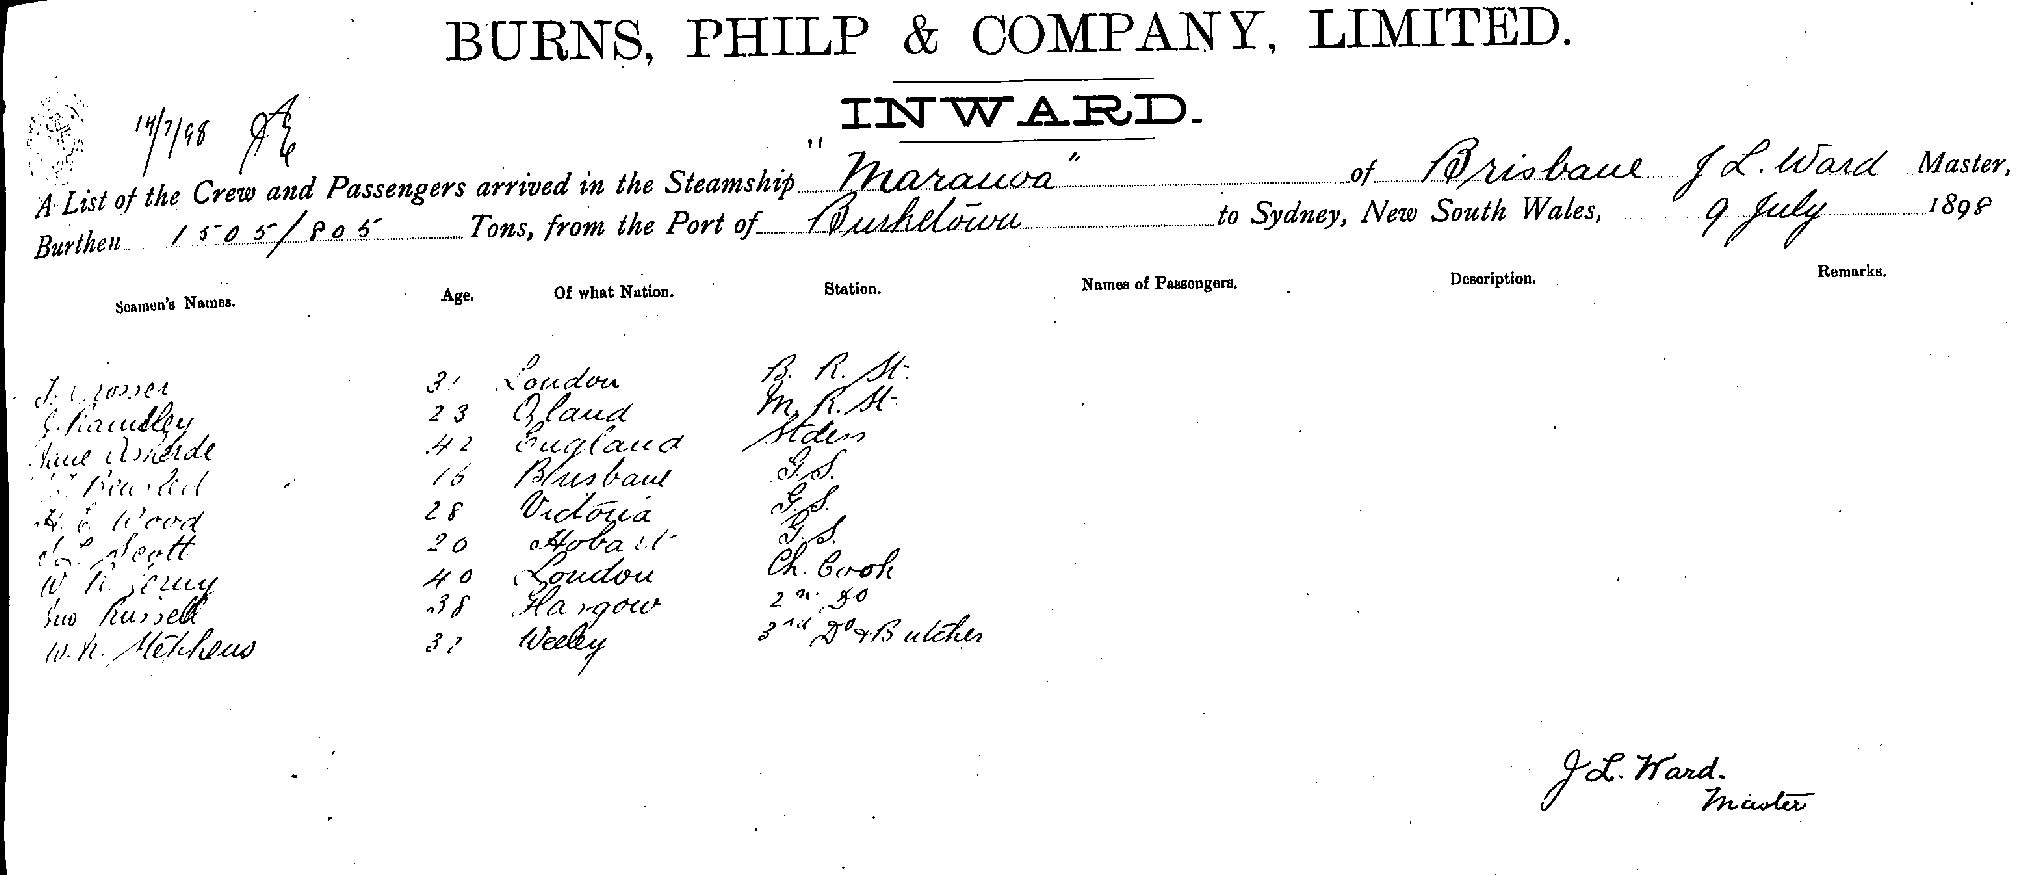 BURNS, PHILP & COMPANY, LIMITED.
INWARD.
14/7/98
A List of the Crew and Passengers arrived in the Steamship "Maranoa" of Brisbane J L. Ward Master,
Burthen 1505/805 Tons, from the Port of Burketown to Sydney, New South Wales, 9 July 1898
Seamen's Names. Age. Of what Nation. Station. Names of Passengers. Description. Remarks.
31 London B. R. St.
23 M. R. St.
42 England Stdess
16 Brisbane G.S.
H. E. Wood 28 Victoria G.S.
Scott 20 Hobart G.S.
W. 40 London Ch. Cook
Jno Russell 38 Glasgow 2nd Do
W. R. Stephens 3rd Do & Butcher
J L. Ward.
Master